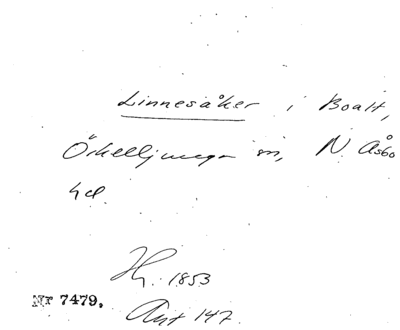 Linnesåker i Boalt,
Örkelljunga sn, N. Åsbo
hd.
Hg. 1853
Nr 7479.
Ant 147.